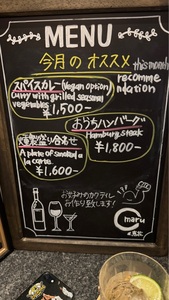 MENU
今月のオススメ this month
recomme
ndation
スパイスカレー(Vegan option)
curry with grilled seasonal
vegetables
¥1,500-
おうちハンバーグ
Hamburg steak
¥1,800-
盛り合わせ
A plate of smoked a
la carte.
¥1,600-
お好みのカクテル
お作り致します!
maru